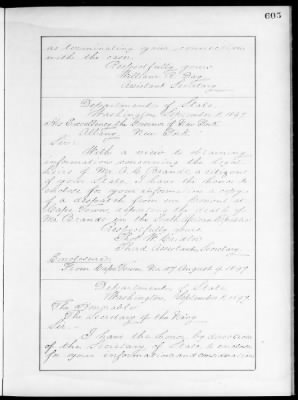 605
as terminating your connection
with the case.
Respectfully yours,
William R. Day
Assistant Secretary.
Department of State,
Washington, September 8, 1897.
His Excellency the Governor of New York
Albany, New York.
Sir:
With a view to obtaining
information concerning the legal
heirs of Mr. A. C. a citizen
of your State, I have the honor to
enclose for your information a copy
of a despatch from our Consul at
Cape Town, stating the death of
Mr. in the South African Republic.
Respectfully yours,
Thos. W. Cridler
Third Assistant Secretary.
Enclosure:
From Cape Town, No. 47 August 9, 1897.
Department of State,
Washington, September 8, 1897.
The Honorable
The Secretary of the Navy
Sir:
I have the honor, by direction
of the Secretary of State to enclose
for your information and consideration